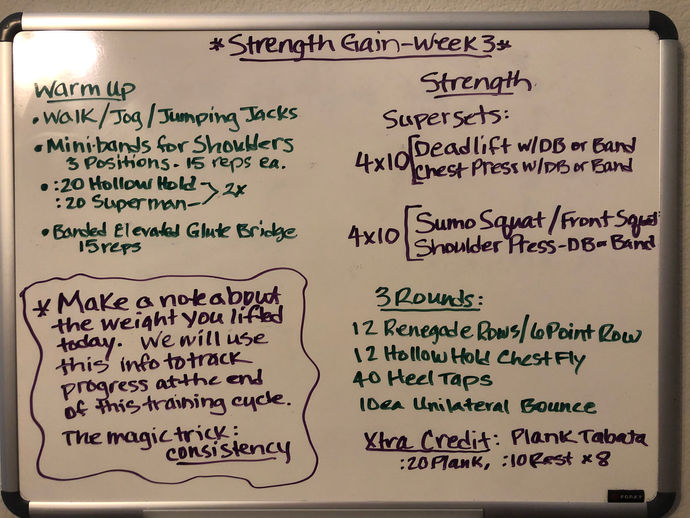 *Strength Gain-Week 3*
Warm Up
• Walk/Jog/Jumping Jacks
• Mini-bands for Shoulders
3 Positions - 15 reps ea.
• :20 Hollow Hold
:20 Superman
2x
• Banded Elevated Glute Bridge
15 reps
* Make a note about
the weight you lifted
today. We will use
this info to track
progress at the end
of this training cycle.
The magic trick:
consistency
Strength
Supersets:
4x10 [Deadlift w/DB or Band
Chest Press w/DB or Band
4x10 [Sumo Squat/Front Squat
Shoulder Press-DB or Band
3 Rounds:
12 Renegade Rows/6 Point Row
12 Hollow Hold Chest Fly
40 Heel Taps
10ea Unilateral Bounce
Xtra Credit: Plank Tabata
:20 Plank, :10 Rest x 8